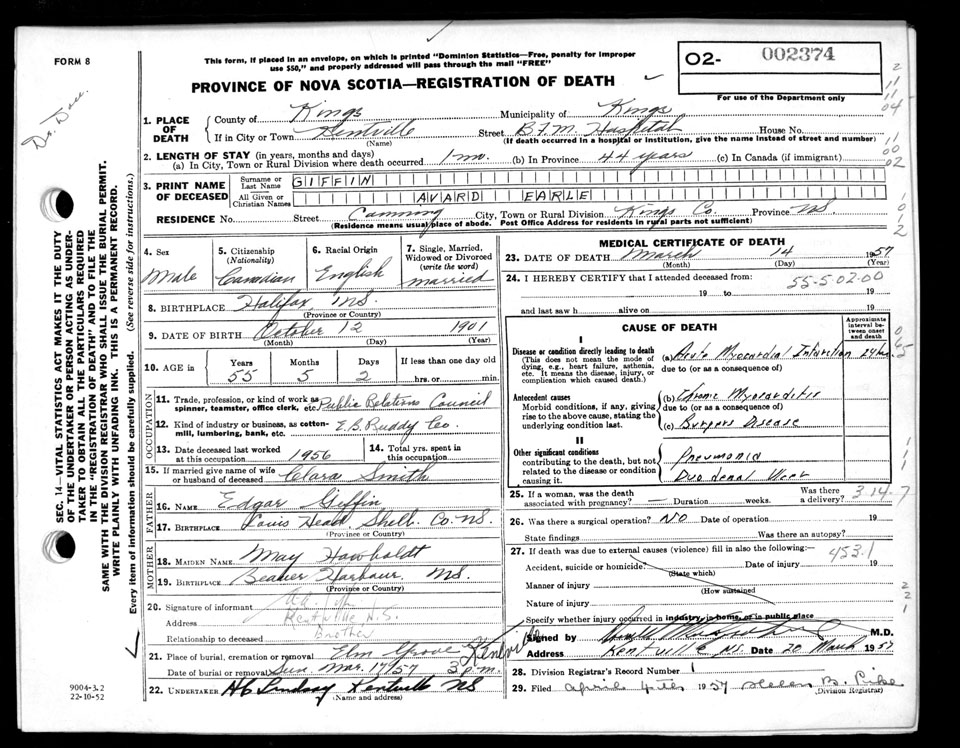 FORM 8
This form, if placed in an envelope, on which is printed "Dominion Statistics—Free, penalty for improper
use $50," and properly addressed will pass through the mail "FREE"
PROVINCE OF NOVA SCOTIA—REGISTRATION OF DEATH
O2- 002374
For use of the Department only
1. PLACE OF DEATH
County of Kings Municipality of Kings
If in City or Town Kentville Street B.F.M. Hospital House No.
(Name) (If death occurred in a hospital or institution, give the name instead of street and number)
2. LENGTH OF STAY (in years, months and days)
(a) In City, Town or Rural Division where death occurred 1 mo. (b) In Province 44 years (c) In Canada (if immigrant)
3. PRINT NAME OF DECEASED
Surname or Last Name GIFFIN
All Given or Christian Names AVARD EARLE
RESIDENCE No. Street Canning City, Town or Rural Division Kings Co. Province NS
(Residence means usual place of abode. Post Office Address for residents in rural parts not sufficient)
4. Sex Male
5. Citizenship (Nationality) Canadian
6. Racial Origin English
7. Single, Married, Widowed or Divorced (write the word) married
8. BIRTHPLACE Halifax NS.
(Province or Country)
9. DATE OF BIRTH October 12 1901
(Month) (Day) (Year)
10. AGE in Years 55 Months 5 Days 2 If less than one day old hrs. or min.
OCCUPATION
11. Trade, profession, or kind of work as spinner, teamster, office clerk, etc. Public Relations Council
12. Kind of industry or business, as cotton-mill, lumbering, bank, etc. E.B. Ruddy Co.
13. Date deceased last worked at this occupation 1956
14. Total yrs. spent in this occupation
15. If married give name of wife or husband of deceased Clara Smith
FATHER
16. NAME Edgar Giffin
17. BIRTHPLACE Louis Head Shell. Co. NS.
(Province or Country)
MOTHER
18. MAIDEN NAME May Hawboldt
19. BIRTHPLACE Beaver Harbour NS.
(Province or Country)
20. Signature of informant
Address Kentville N.S.
Relationship to deceased Brother
21. Place of burial, cremation or removal Elm Grove Kentville
Date of burial or removal Sun. Mar. 17/57 3 p.m.
22. UNDERTAKER Lindsay Kentville NS
(Name and address)
MEDICAL CERTIFICATE OF DEATH
23. DATE OF DEATH March 14 1957
(Month) (Day) (Year)
24. I HEREBY CERTIFY that I attended deceased from:
55-5-02-00
19 to 19
and last saw h alive on 19
CAUSE OF DEATH
Approximate interval between onset and death
I
Disease or condition directly leading to death
(This does not mean the mode of dying, e.g., heart failure, asthenia, etc. It means the disease, injury, or complication which caused death.)
(a) Acute Myocardial Infarction
due to (or as a consequence of)
Antecedent causes
Morbid conditions, if any, giving rise to the above cause, stating the underlying condition last.
(b) Chronic Myocarditis
due to (or as a consequence of)
(c) Burgers Disease
II
Other significant conditions
contributing to the death, but not related to the disease or condition causing it.
Pneumonia
Duodenal Ulcer
25. If a woman, was the death associated with pregnancy? — Duration weeks. Was there a delivery?
3-14-7
26. Was there a surgical operation? No Date of operation 19
State findings Was there an autopsy?
27. If death was due to external causes (violence) fill in also the following:— 453.1
Accident, suicide or homicide? Date of injury 19
(State which)
Manner of injury
(How sustained)
Nature of injury
Specify whether injury occurred in industry, in home, or in public place
Signed by M.D.
Address Kentville NS. Date 20 March 1957
28. Division Registrar's Record Number 1
29. Filed April 4th 1957 Helen B.
(Division Registrar)
SEC. 14—VITAL STATISTICS ACT MAKES IT THE DUTY
OF THE UNDERTAKER OR PERSON ACTING AS UNDER-
TAKER TO OBTAIN ALL THE PARTICULARS REQUIRED
IN THE "REGISTRATION OF DEATH" AND TO FILE THE
SAME WITH THE DIVISION REGISTRAR WHO SHALL ISSUE THE BURIAL PERMIT.
WRITE PLAINLY WITH UNFADING INK. THIS IS A PERMANENT RECORD.
Every item of information should be carefully supplied. (See reverse side for instructions.)
9004-3.2
22-10-52